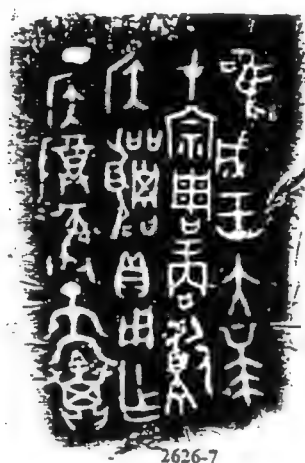 唯成王大𠦪
才宗周商獻
侯貝用乍
丁侯尊彝天黽
2626-7